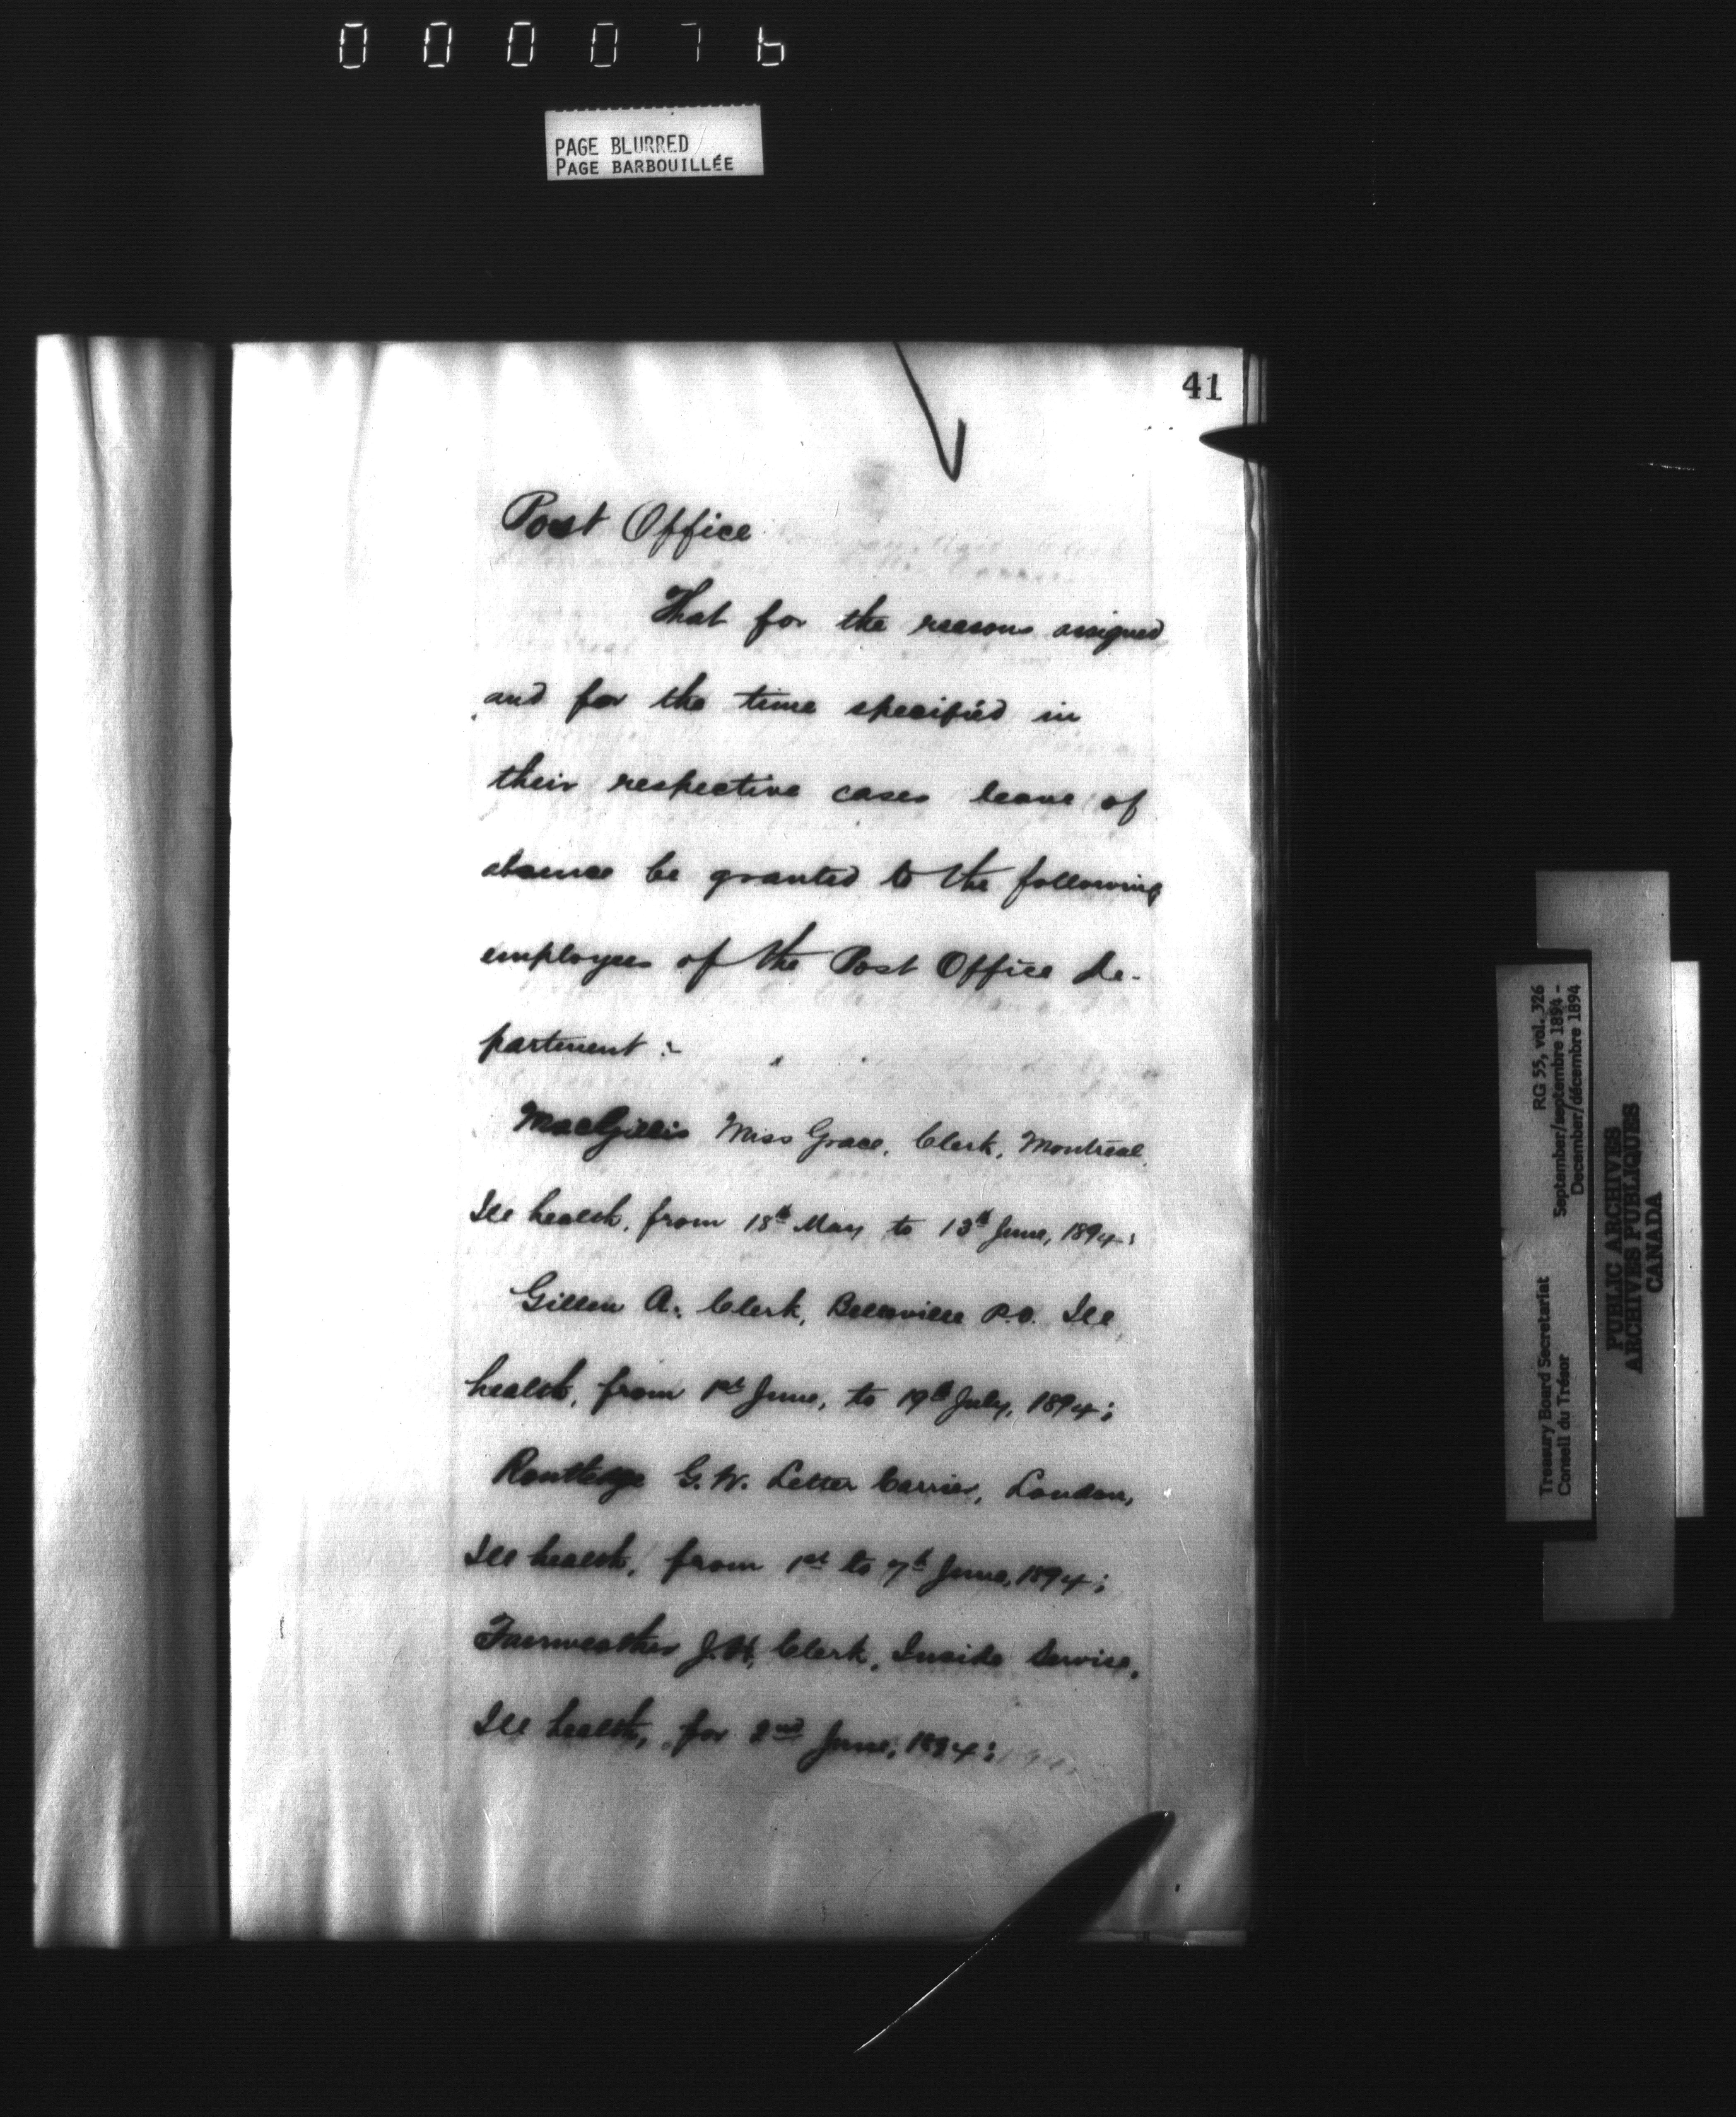 000076
PAGE BLURRED
PAGE BARBOUILLÉE
41
Post Office
That for the reasons assigned
and for the time specified in
their respective cases leave of
absence be granted to the following
employees of the Post Office De-
partment :-
MacGillis Miss Grace, Clerk, Montreal,
Ill health, from 18th May to 13th June, 1894;
Gillen A. Clerk, Belleville P.O. Ill
health, from 1st June, to 19th July, 1894;
Routledge G. W. Letter Carrier, London,
Ill health, from 1st to 7th June, 1894;
Fairweather J. H. Clerk, Inside Service,
Ill health, for 2nd June, 1894;
Treasury Board Secretariat
Conseil du Trésor
RG 55, vol. 326
September/septembre 1894 -
December/décembre 1894
PUBLIC ARCHIVES
ARCHIVES PUBLIQUES
CANADA